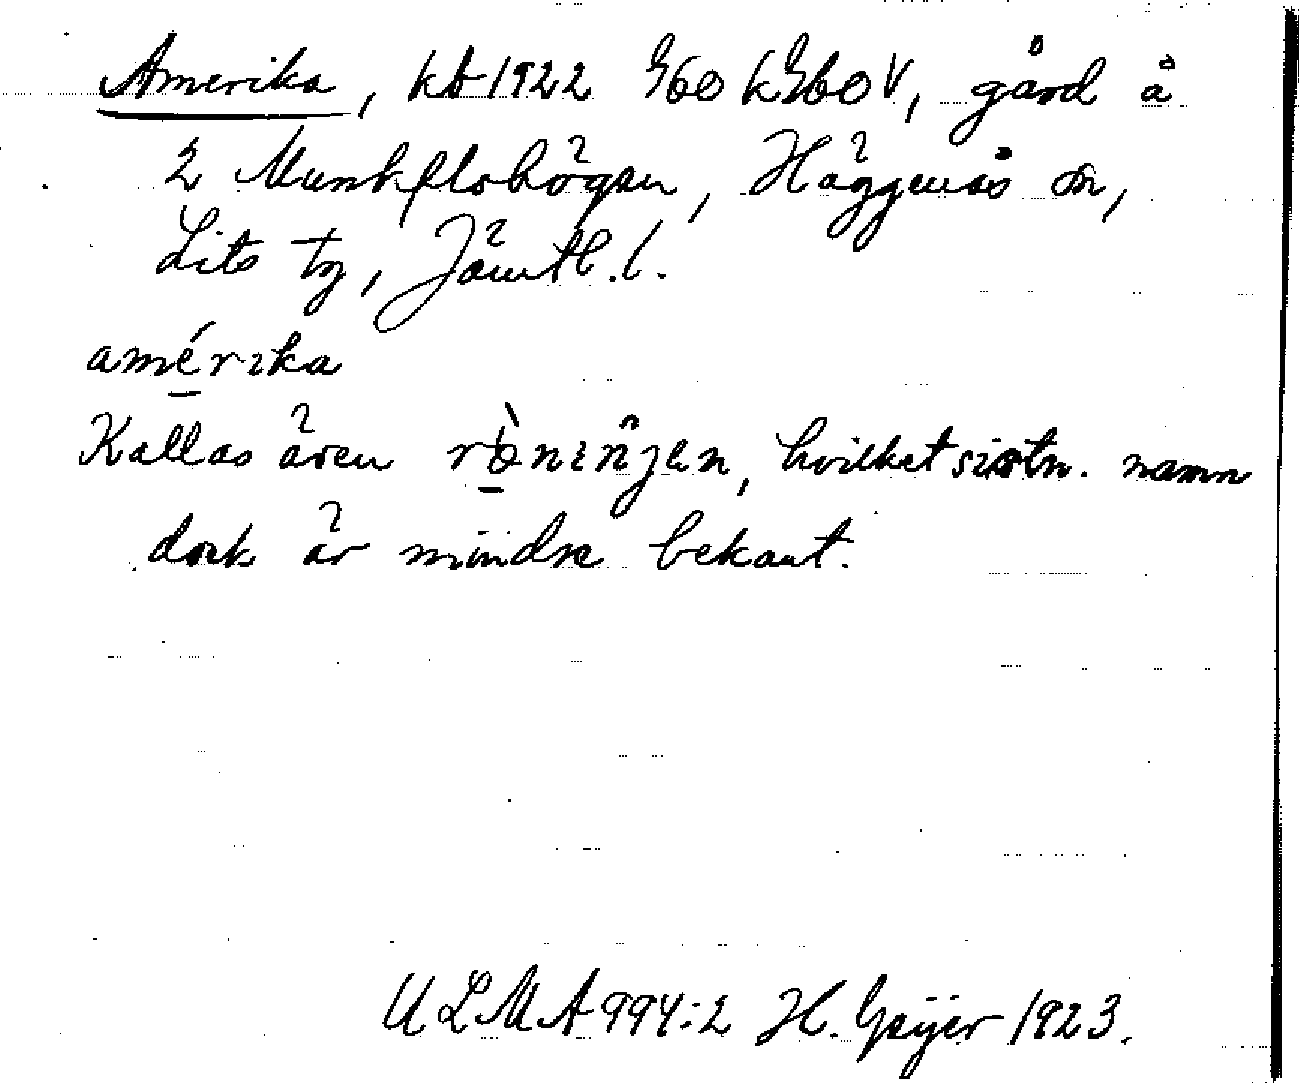 Amerika, kb 1922 G60 kG60V, gård å
2 Munkflohögen, Häggenås sn,
Lits tg, Jämtl. l.
amérika
Kallas även rǿniŋjen, hvilket sistn. namn
dock är mindre bekant.
ULMA 994:2 H. Geijer 1923.